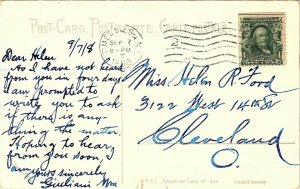 POST-CARD, POSTKARTE, CARTE POSTALE
SEP 7
8-PM
9/7/8
Dear Helen
As I have not heard
from you in four days
I am prompted to
write you to ask
if there is any-
thing the matter.
Hoping to hear
from you soon, I
am,
Yours sincerely
Wm
Miss Helen R. Ford
3122 West 14th St
Cleveland
O.